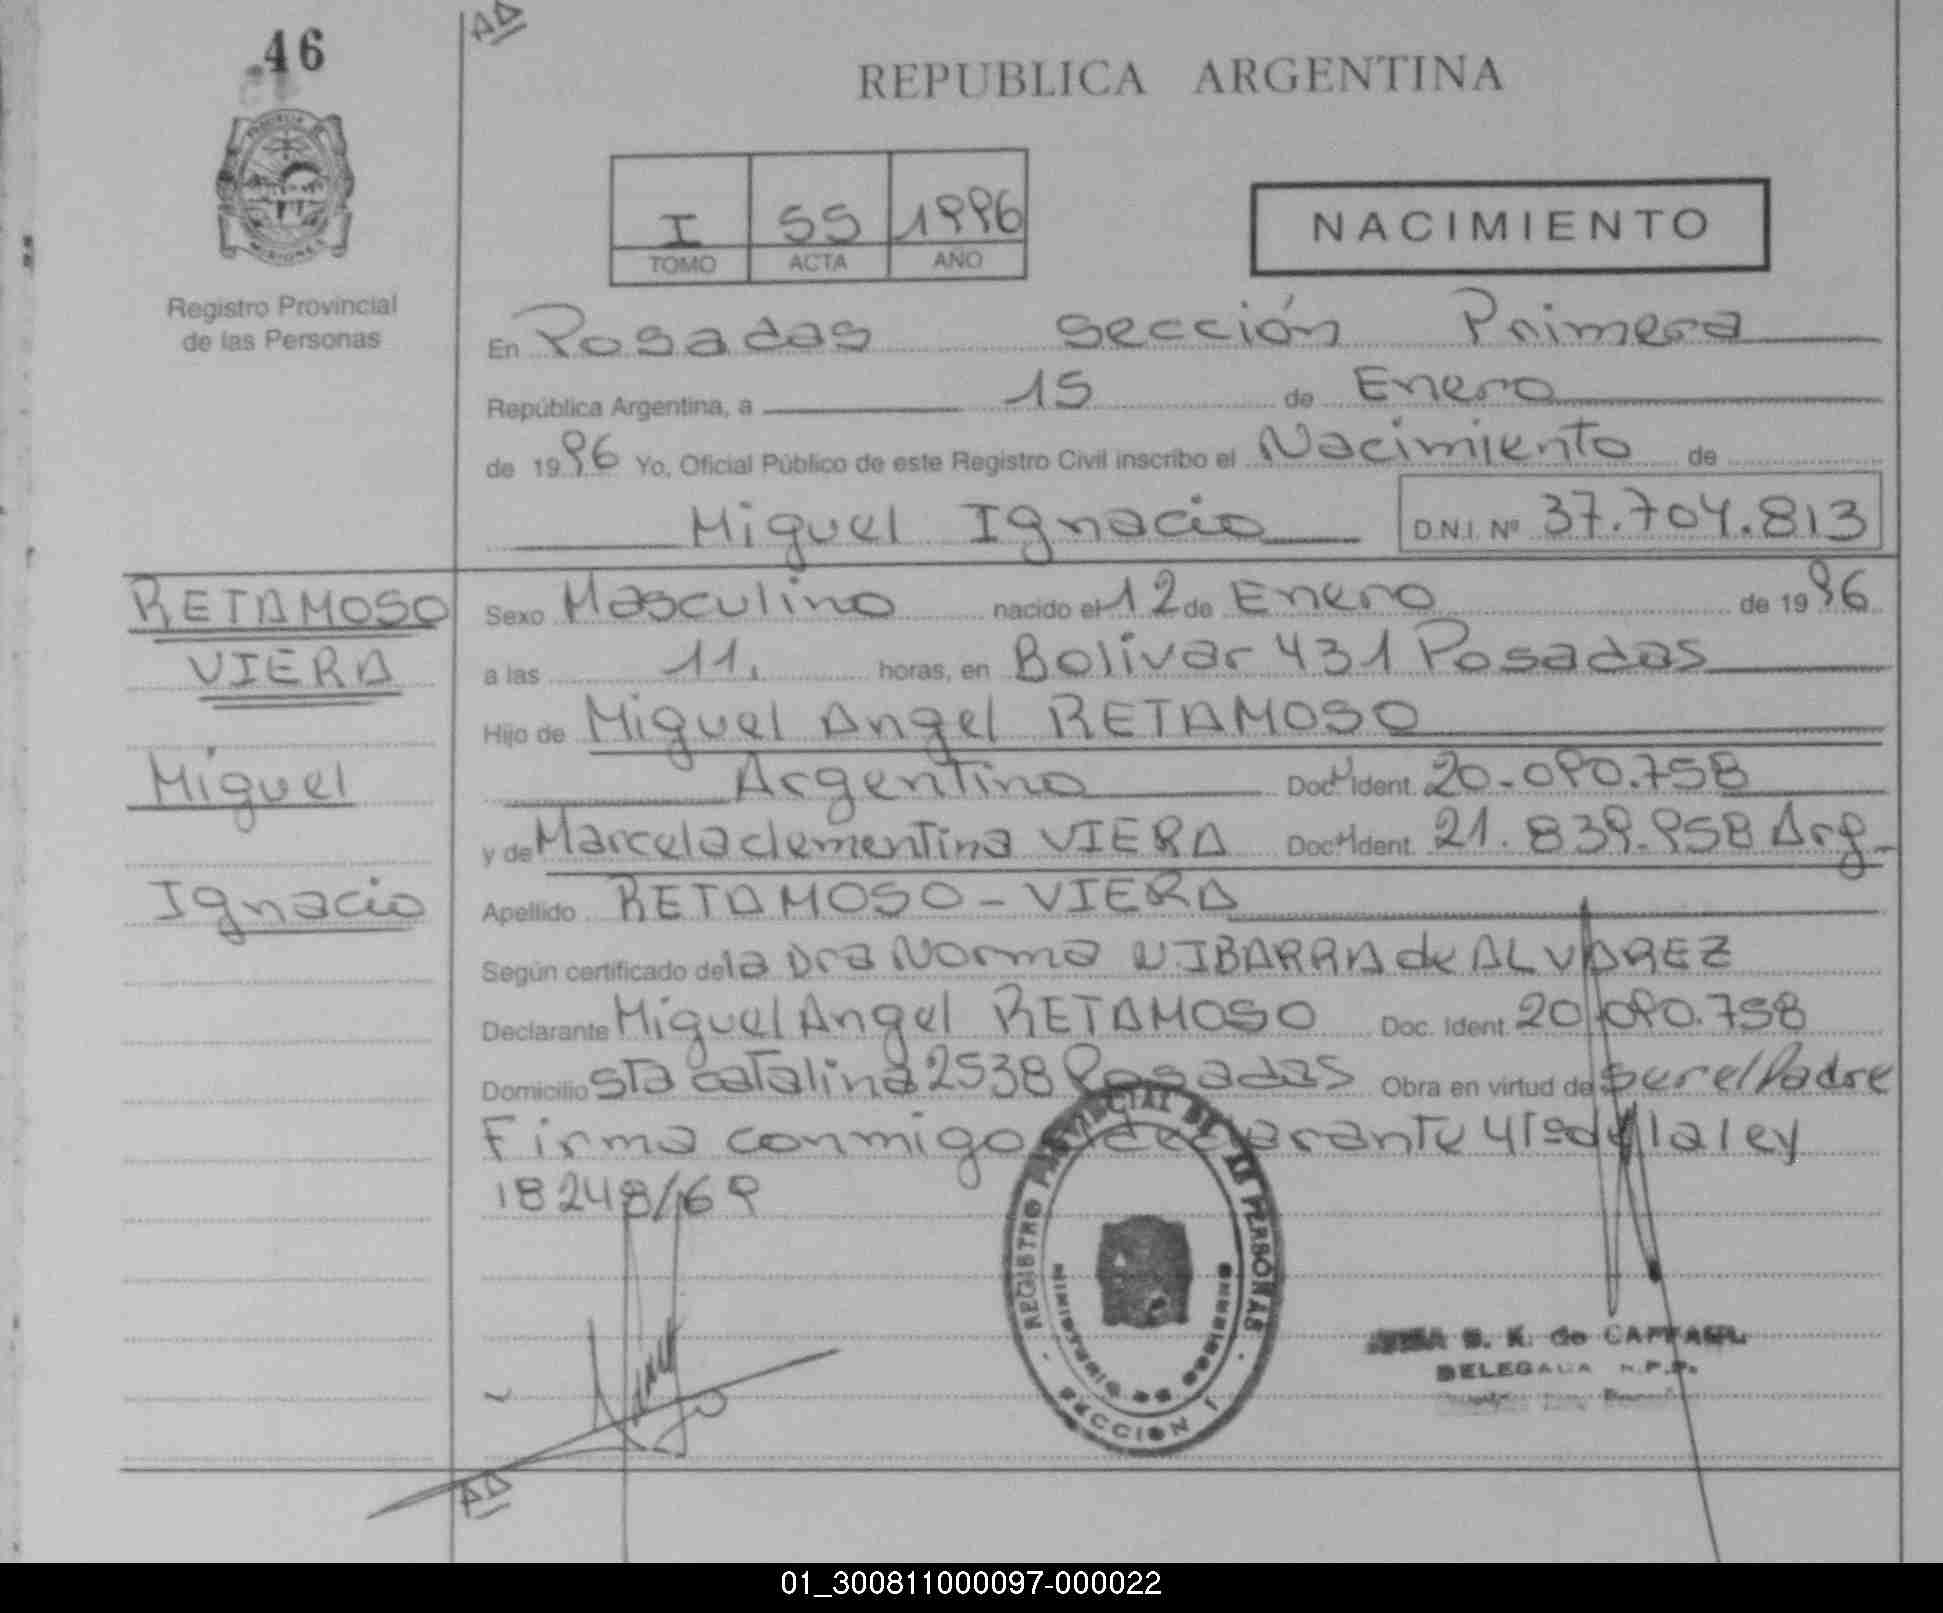 46
AD
REPUBLICA ARGENTINA
I 55 1996
TOMO ACTA AÑO
NACIMIENTO
Registro Provincial
de las Personas
En Posadas sección Primera
República Argentina, a 15 de Enero
de 1996 Yo, Oficial Público de este Registro Civil inscribo el Nacimiento de
Miguel Ignacio D.N.I. Nº 37.704.813
RETAMOSO
VIERA
Miguel
Ignacio
Sexo Masculino nacido el 12 de Enero de 1996
a las 11. horas, en Bolivar 431 Posadas
Hijo de Miguel Angel RETAMOSO
Argentino Doc. Ident. 20.090.758
y de Marcela clementina VIERA Doc. Ident. 21.839.958 Arg.
Apellido RETAMOSO - VIERA
Según certificado de la Dra Norma N IBARRA de ALVAREZ
Declarante Miguel Angel RETAMOSO Doc. Ident. 20.090.758
Domicilio sta catalina 2538 Posadas Obra en virtud de ser el Padre
Firma conmigo declarante la ley
18248/69
REGISTRO PROVINCIAL DE LAS PERSONAS
MINISTERIO DE GOBIERNO
SECCION 1
S. K. de
DELEGADA R.P.P.
AD
01_300811000097-000022